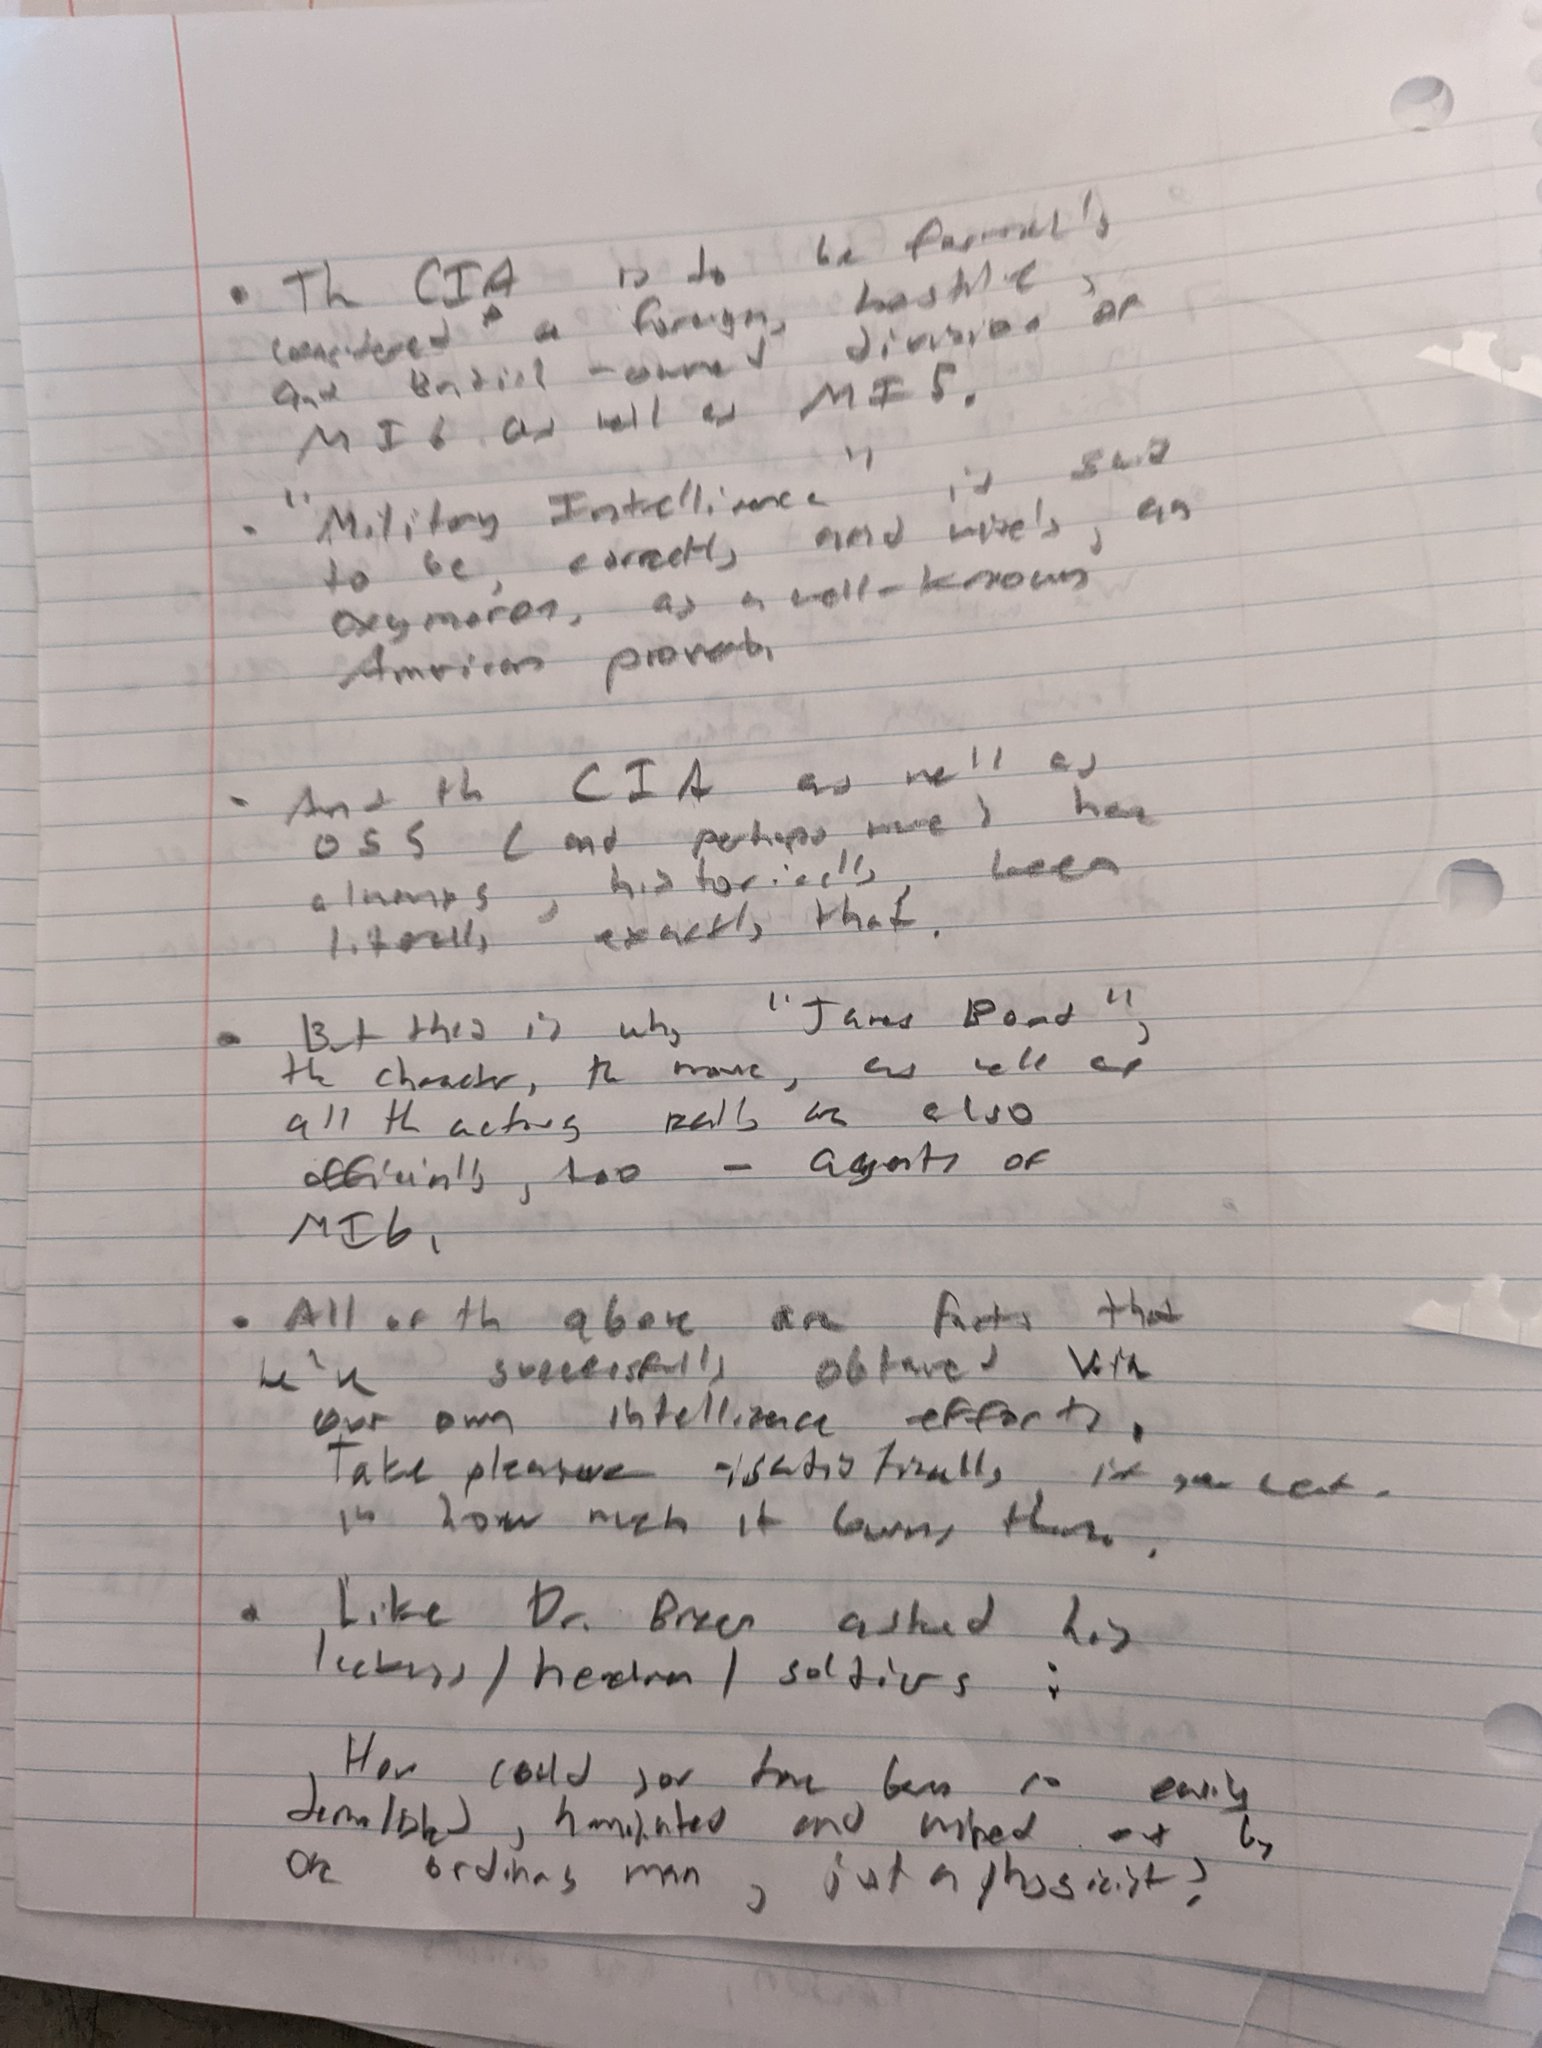 • Th CIA is to be formally
considered a foreign, hostile,
and British-owned division of
MI6 as well as MI5.
• "Military Intelligence" is said
to be, correctly and wisely, an
oxymoron, as a well-known
American proverb.
• And th CIA as well as
OSS (and perhaps more) have
always, historically, been
literally exactly that.
• But this is why "James Bond",
the character, the movie, as well as
all th actors really are also
officially, too - agents of
MI6.
• All of th above are facts that
we've successfully obtained with
our own intelligence efforts.
Take pleasure if you
in how much it burns them.
• Like Dr. asked his
soldiers:
How could you have been so easily
demolished, humiliated and wiped out by
one ordinary man, just a physicist?